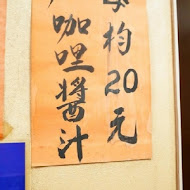 均20元
咖哩醬汁